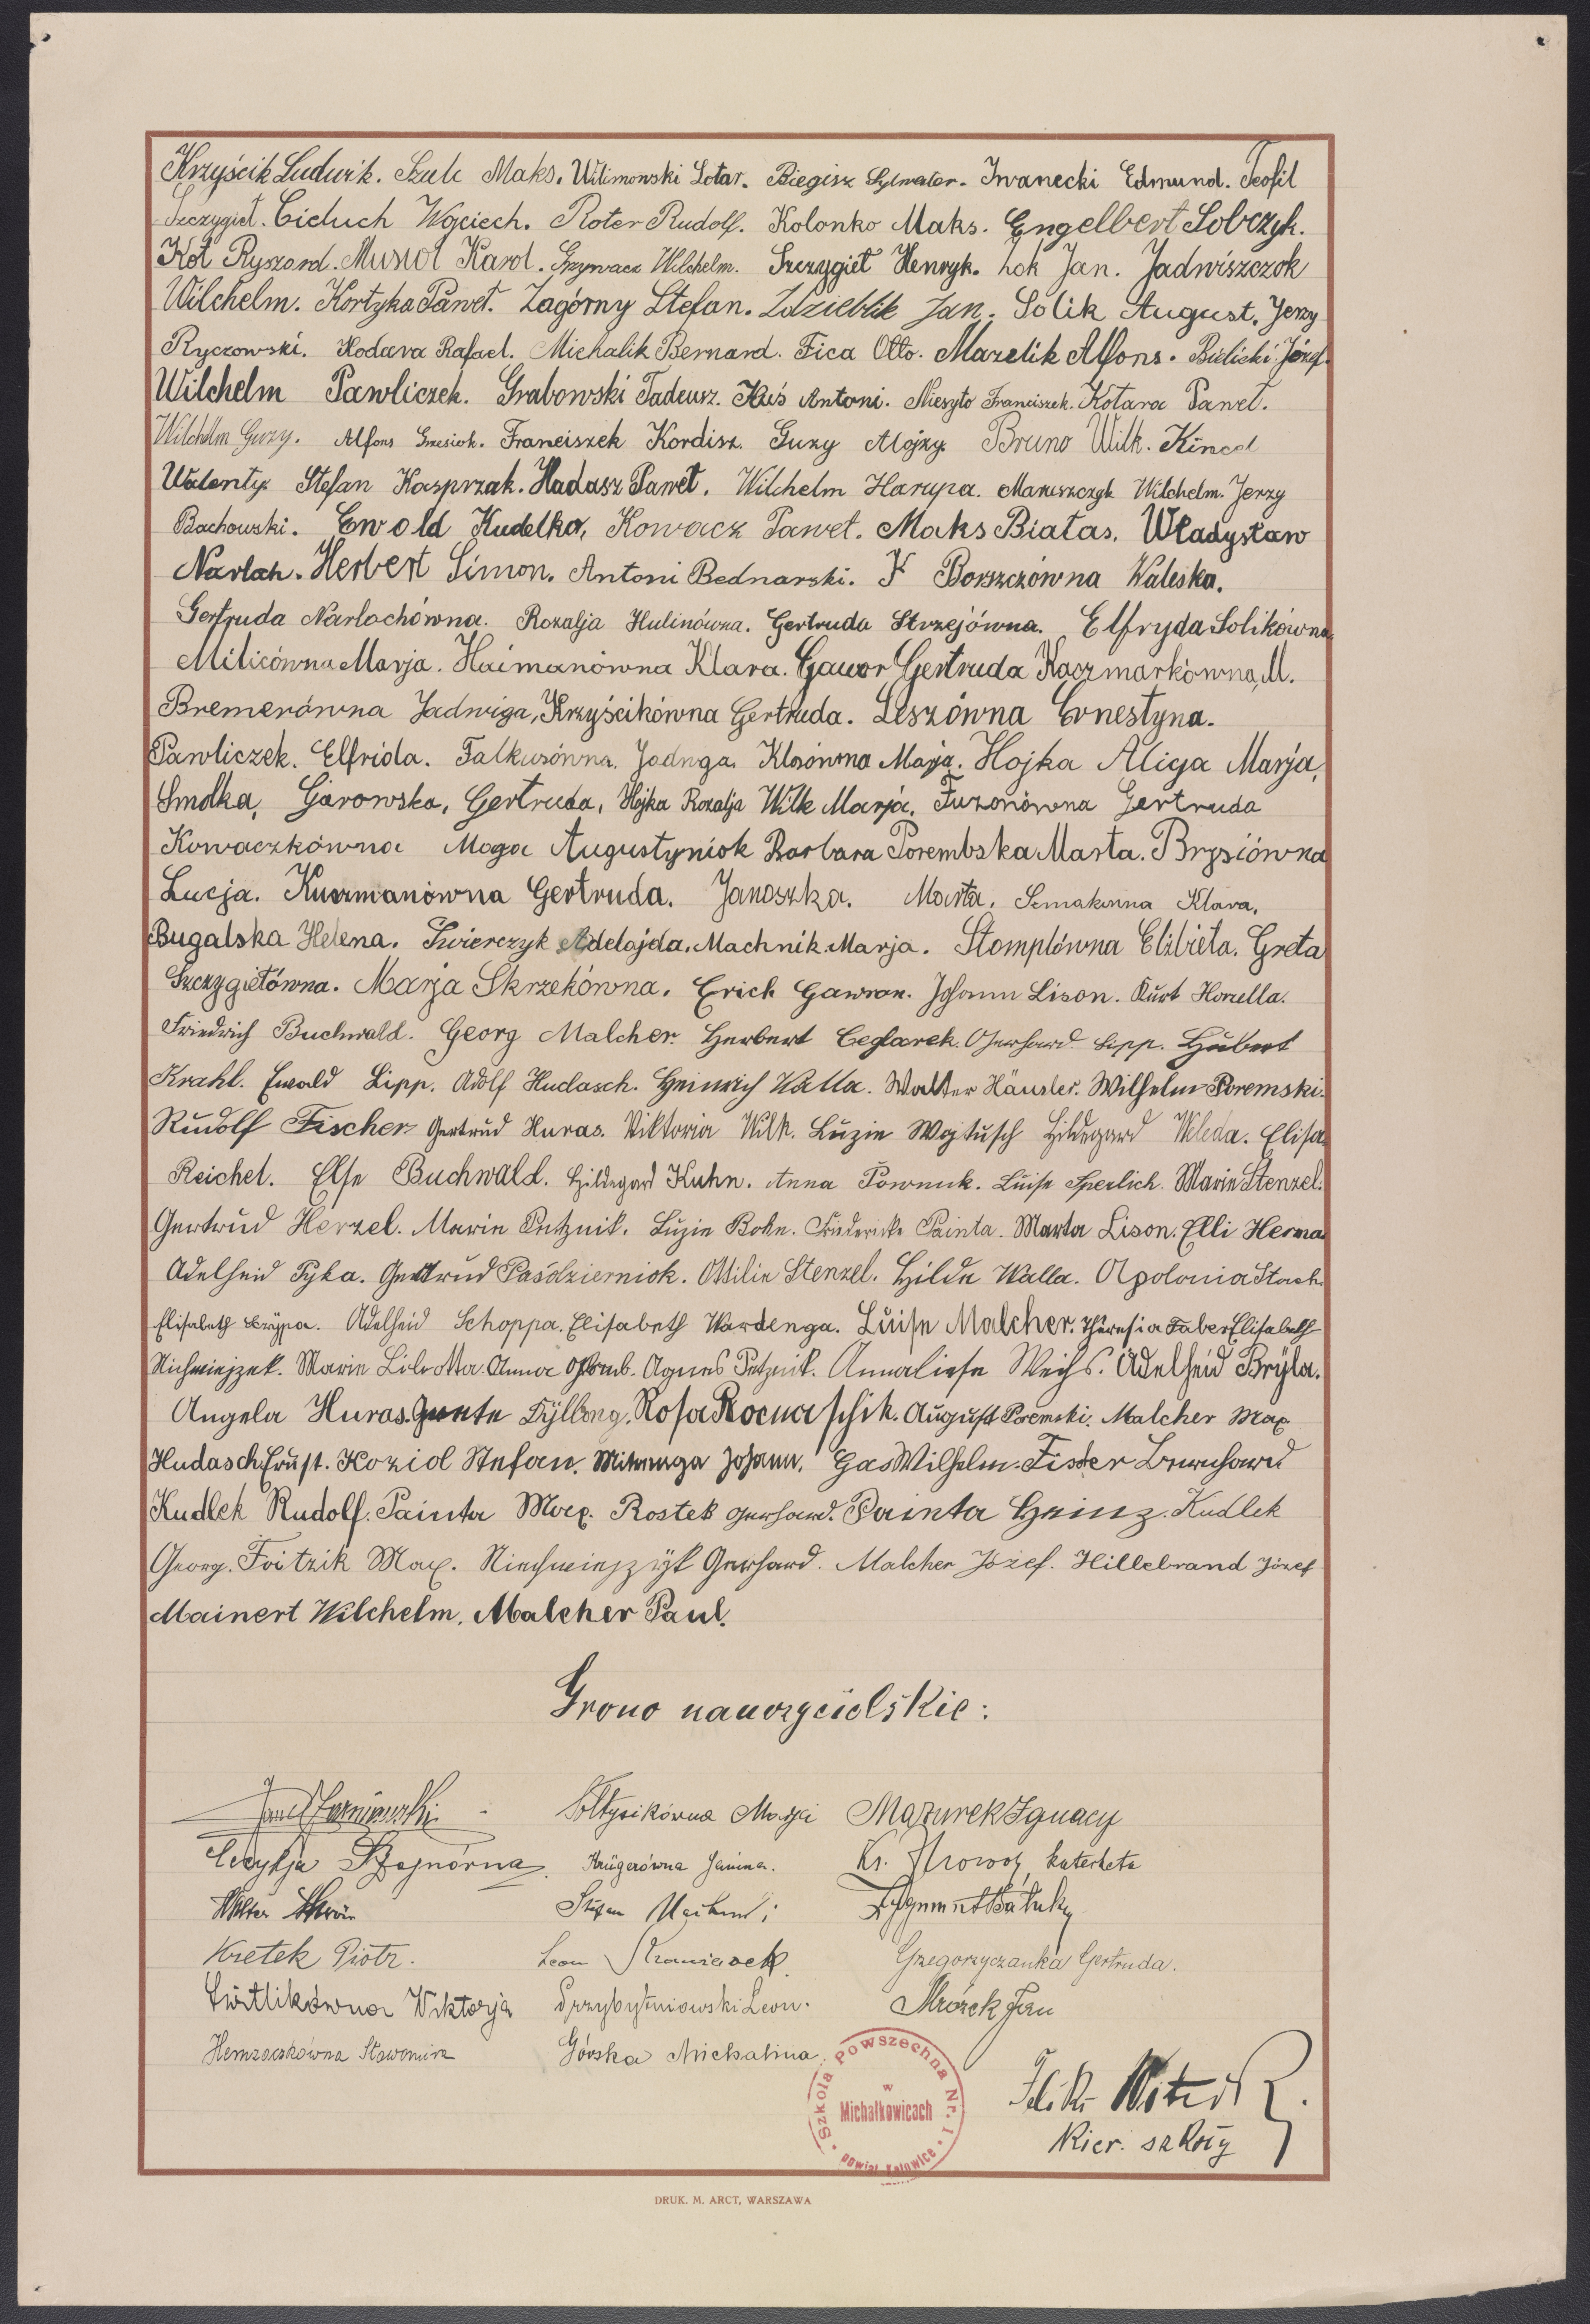 Krzyścik Ludwik. Szulc Maks. Wilimowski Lotar. Biegisz Sylwester. Iwanecki Edmund. Teofil
Szczygieł. Cieluch Wojciech. Roter Rudolf. Kolonko Maks. Engelbert Sobczyk.
Kot Ryszard. Musioł Karol. Grzywacz Wilchelm. Szczygieł Henryk. Żok Jan. Jadwiszczok
Wilchelm. Kortyka Paweł. Zagórny Stefan. Zdzieblik Jan. Solik August. Jerzy
Ryczowski. Kodava Rafael. Michalik Bernard. Fica Otto. Mazelik Alfons. Bielicki Józef.
Wilchelm Pawliczek. Grabowski Tadeusz. Kuś Antoni. Niesyto Franciszek. Kotara Paweł.
Wilchelm Guzy. Alfons Grzesiok. Franciszek Kordisz. Guzy Alojzy. Bruno Wilk. Kincel
Walenty. Stefan Kasprzak. Hadasz Paweł. Wilchelm Harupa. Maruszczyk Wilchelm. Jerzy
Bachowski. Ewold Kudelko, Kowacz Paweł. Maks Białas. Władysław
Narlah. Herbert Simon. Antoni Bednarski. Borszczówna Waleska.
Gertruda Narlochówna. Rozalja Hulinówna. Gertruda Strzejówna. Elfryda Solikówna
Milicówna Marja. Haimanówna Klara. Gawor Gertruda Kaczmarkówna M.
Bremerówna Jadwiga, Krzyścikówna Gertruda. Leszówna Ernestyna.
Pawliczek. Elfrida. Falkusówna. Jadwga. Klosówna Marja. Hojka Alicja Marja,
Smolka, Garowska, Gertruda, Hojka Rozalja Wilk Marja. Fuzonówna Gertruda
Kowaczkówna Moga Augustyniok Barbara Porembska Marta. Brysiówna
Lucja. Kuczmanówna Gertruda. Janoszka. Marta. Klara.
Bugalska Helena. Świerczyk Adelajda. Machnik Marja. Stomplówna Elżbieta. Greta
Szczygiełówna. Marja Skrzekówna. Erich Gawron. Johann Lison. Kurt Honella.
Friedrich Buchwald. Georg Malcher. Herbert Ceglarek. Gerhard Lipp. Hubert
Krahl. Ewald Lipp. Adolf Hudasch. Heinrich Walla. Walter Häusler. Wilhelm Poremski.
Rudolf Fischer Gertrud Huras. Viktoria Wilk. Luzie Wojtusch Hildegard Weleda. Elisa
Reichel. Else Buchwald. Hildegard Kuhn. Anna Pownuk. Luise Sperlich. Marie Stenzel.
Gertrud Herzel. Marie Putznik. Luzie Bohn. Friedericke Painta. Marta Lison. Elli Herma
Adelheid Tyka. Gertrud Paśdzierniok. Ottilie Stenzel. Hilde Walla. Apolonia Stach
Elisabeth Adelheid Schoppa. Elisabeth Wardenga. Luise Malcher. Theresia Faber Elisabeth
Nichwiejzek. Marie Anna Agnes Petznik. Annaliese Weihs. Adelheid Bryla.
Angela Huras. Rosa Rocnaschik. August Poremski. Malcher Max
Hudasch Ernst. Koziol Stefan. Johann. Gas Wilhelm. Fister Bernhard
Kudlek Rudolf. Painta Max. Rostek Gerhard. Painta Heinz. Kudlek
Georg. Foitzik Max. Niechwiejzyk Gerhard. Malcher Józef. Hillebrand Józef
Mainert Wilchelm. Malcher Paul.
Grono nauczycielskie:
Sołtysikówna Marja Mazurek Ignacy
Cecylja Krügerówna Janina. Ks. katecheta
Walter Stefan Zygmunt
Kretek Piotr. Leon Grzegorzyczanka Gertruda.
Świtlikówna Wiktorja Przybytniowski Leon. Mrózek Jan
Sławomira Górska Michalina
Szkoła Powszechna Nr. 1
w
Michałkowicach
powiat Katowice
Kier. szkoły
DRUK. M. ARCT, WARSZAWA